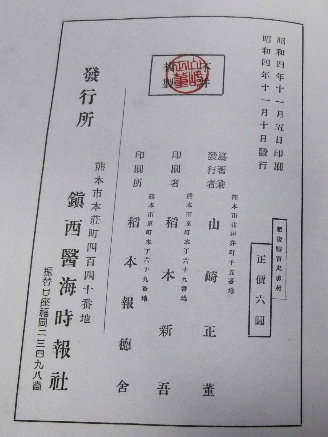 昭和四年十一月五日印刷
昭和四年十一月十日發行
肥後醫育史奧附
正價六圓
不許
複製
山崎正董
熊本市北坪井町千五番地
編著兼
發行者
山崎正董
熊本市京町本丁六十九番地
印刷者
稻本新吾
熊本市京町本丁六十九番地
印刷所
稻本報德舍
發行所
熊本市本莊町四百四十番地
鎭西醫海時報社
振替口座福岡二三四九八番